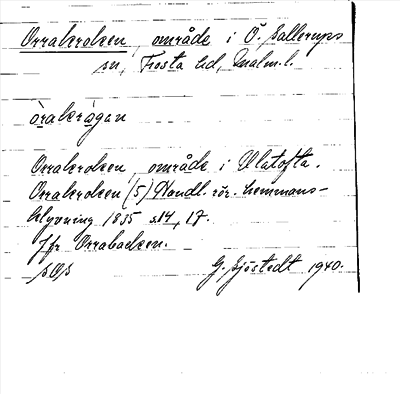 Orrakroken, område i Ö. Sallerups
sn, Frosta hd, Malm. l.
òrakrågan
Orrakroken, område i Ulatofta.
Orrakroken (5) Handl. rör. hemmans-
klyvning 1835 s14, 17.
Jfr Orrabacken.
G. Sjöstedt 1940.